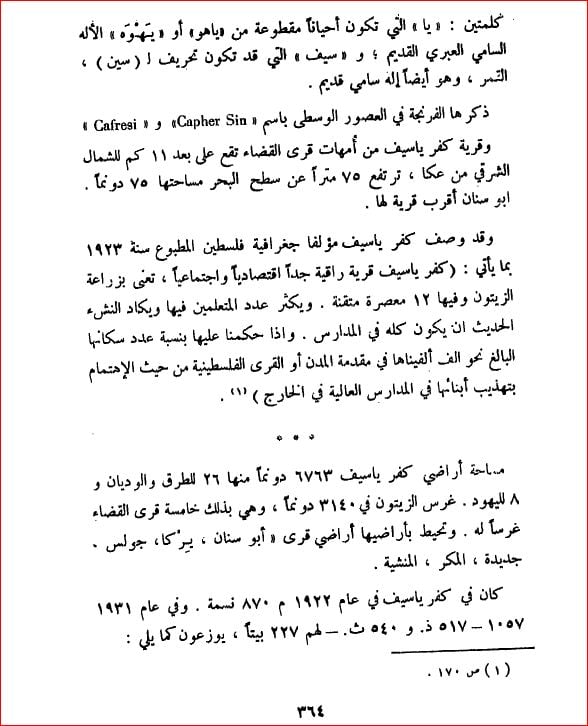 كلمتين : « يا » التي تكون أحياناً مقطوعة من «ياهو» أو « يَهْوَه » الأله
السامي العبري القديم ؛ و « سيف » التي قد تكون تحريف لـ ( سين ) ،
القمر ، وهو أيضاً إله سامي قديم .
ذكرها الفرنجة في العصور الوسطى باسم « Capher Sin» و « Cafresi »
وقرية كفر ياسيف من أمهات قرى القضاء تقع على بعد ١١ كم للشمال
الشرقي من عكا ، ترتفع ٧٥ متراً عن سطح البحر مساحتها ٧٥ دونماً .
ابو سنان أقرب قرية لها .
وقد وصف كفر ياسيف مؤلفا جغرافية فلسطين المطبوع سنة ١٩٢٣
بما يأتي : ( كفر ياسيف قرية راقية جداً اقتصادياً واجتماعياً ، تعنى بزراعة
الزيتون وفيها ١٢ معصرة متقنة . ويكثر عدد المتعلمين فيها ويكاد النشء
الحديث ان يكون كله في المدارس . واذا حكمنا عليها بنسبة عدد سكانها
البالغ نحو الف ألفيناها في مقدمة المدن أو القرى الفلسطينية من حيث الإهتمام
بتهذيب أبنائها في المدارس العالية في الخارج ) (١) .
* * *
مساحة أراضي كفر ياسيف ٦٧٦٣ دونماً منها ٢٦ للطرق والوديان و
٨ لليهود . غرس الزيتون في ٣١٤٠ دونماً ، وهي بذلك خامسة قرى القضاء
غرساً له . وتحيط بأراضيها أراضي قرى « أبو سنان ، يِرْكا، جولس .
جديدة ، المكر ، المنشية .
كان في كفر ياسيف في عام ١٩٢٢ م ٨٧٠ نسمة . وفي عام ١٩٣١
١٠٥٧ – ٥١٧ ذ. و ٥٤٠ ث. – لهم ٢٢٧ بيتاً ، يوزعون كما يلي :
( ١ ) ص ١٧٠ .
٣٦٤